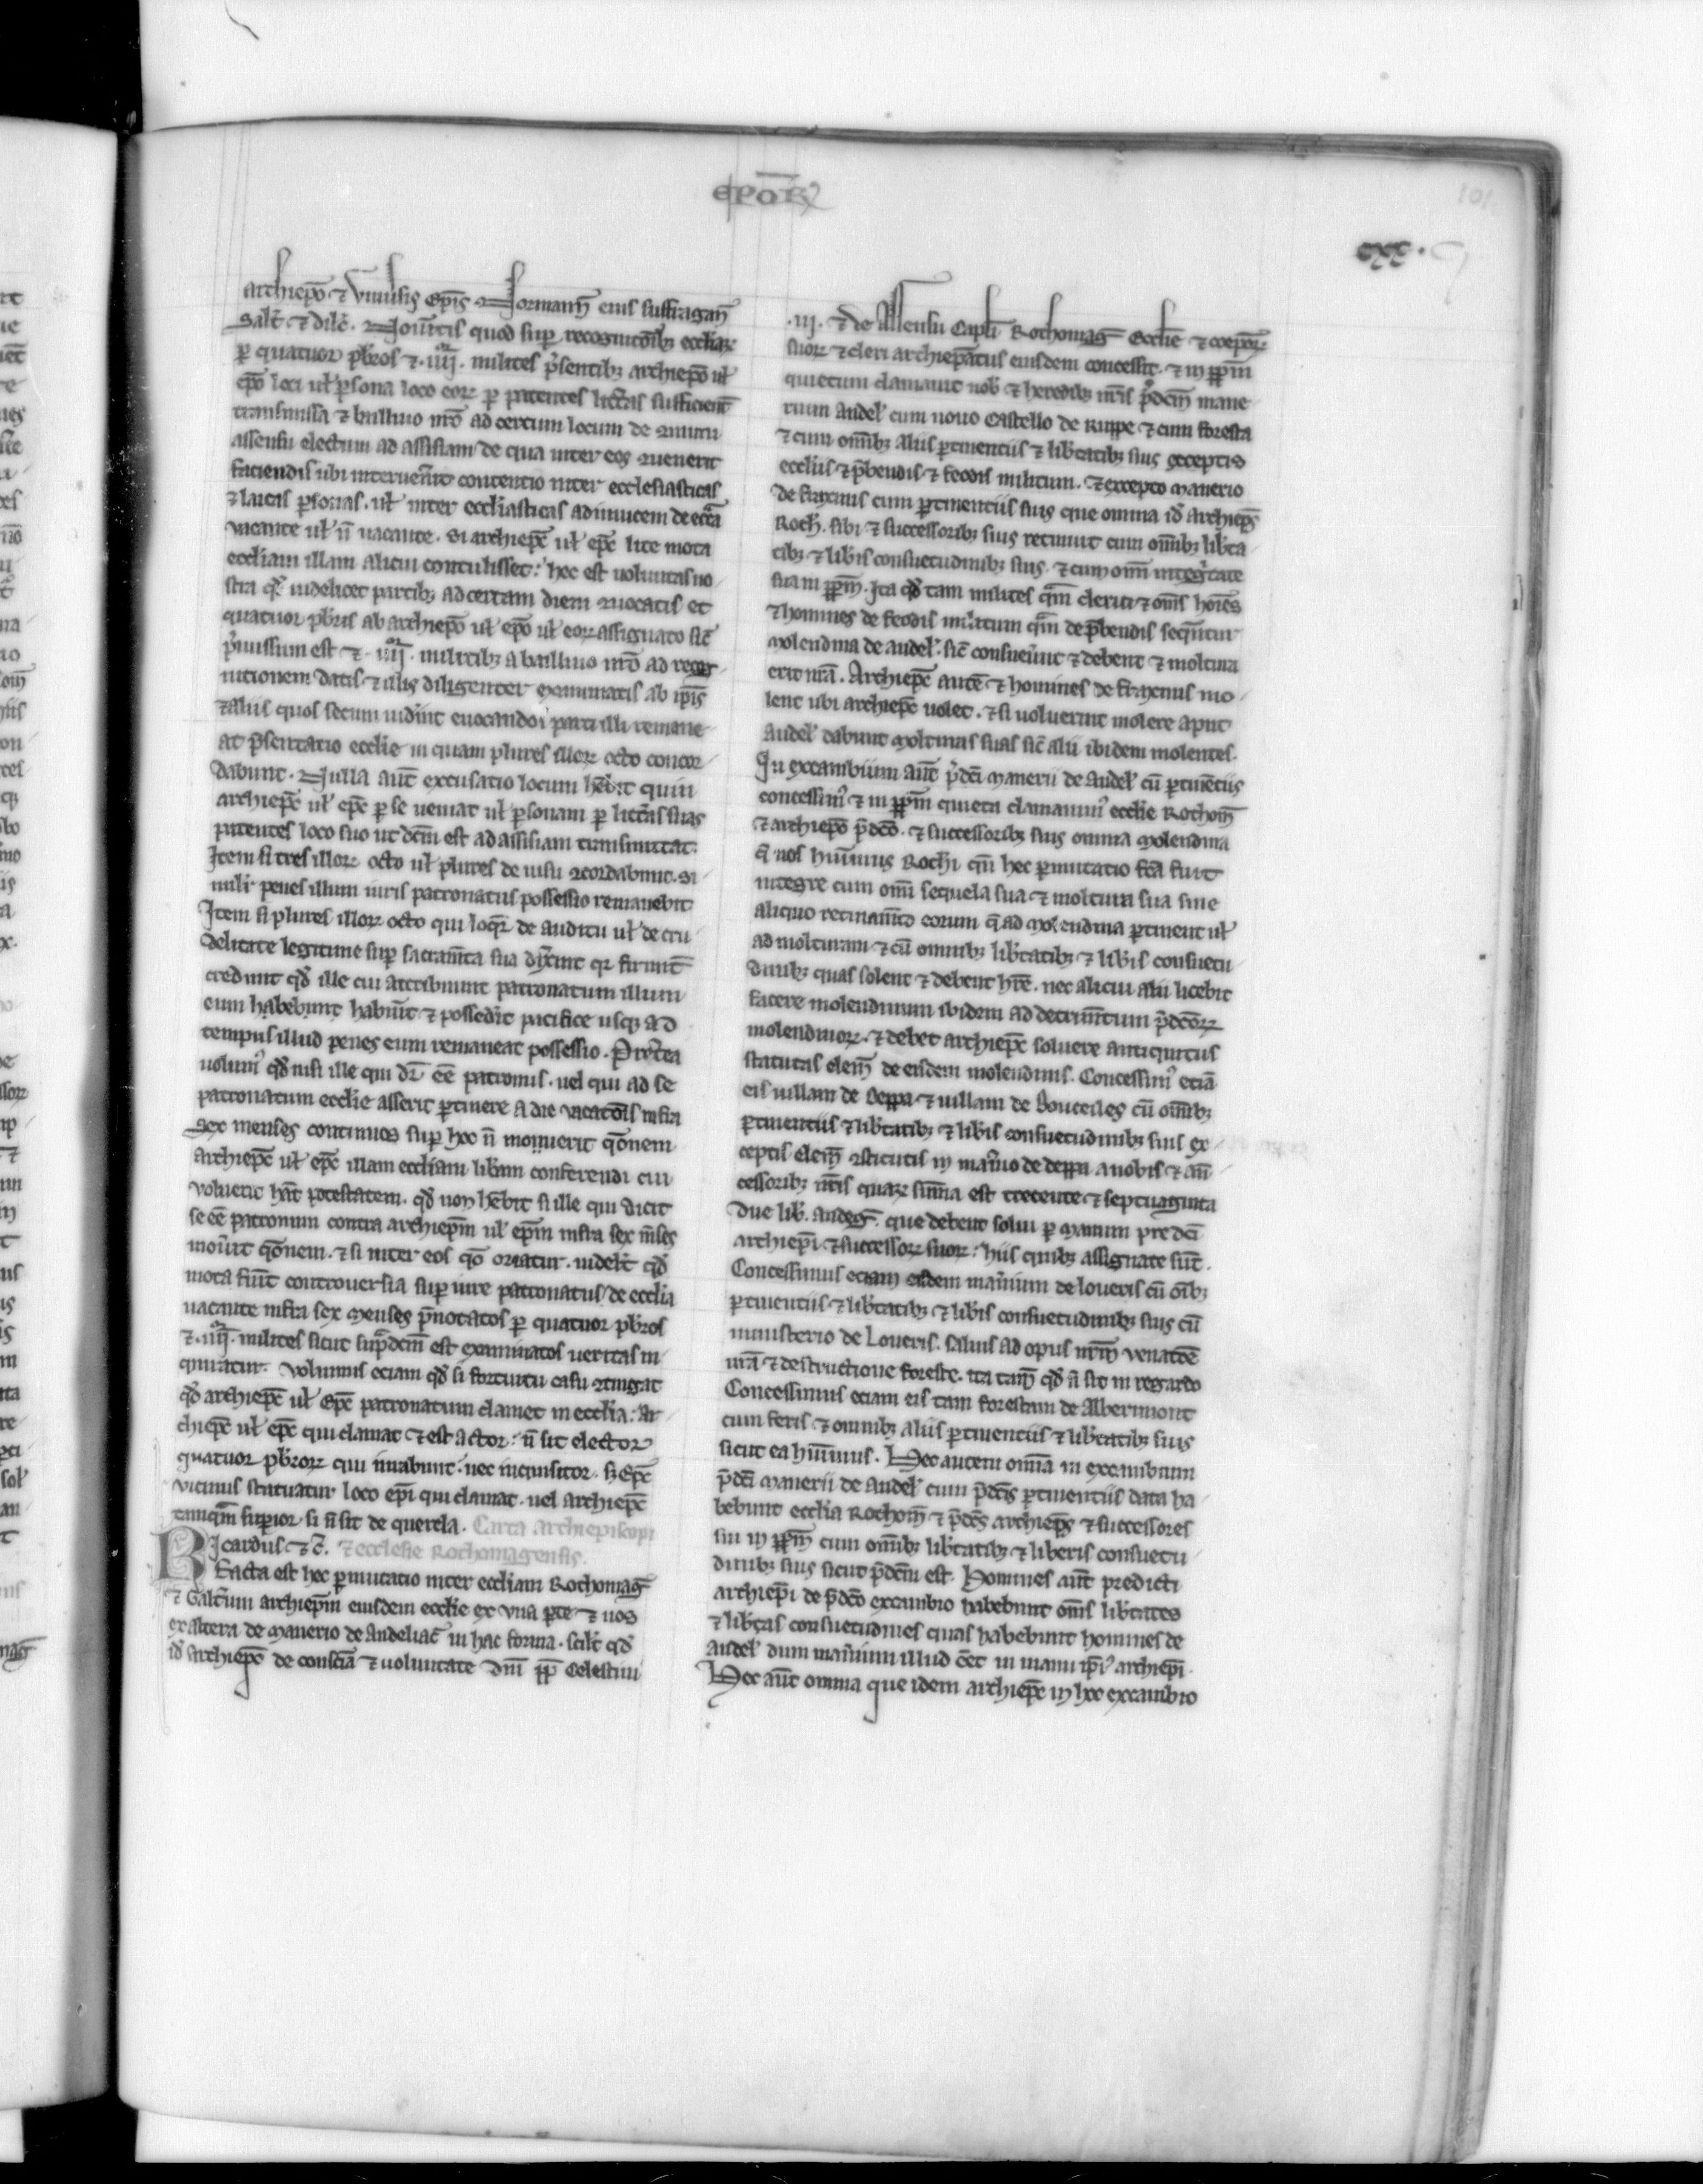 ep̄oꝝ
101
cxx.
archiep̄o ⁊ vniũsis Ep̄is Normann̄ eius suffragan̄
Salt̄ ⁊ dilc̄. Noũitis quod sup̱ recognic̄oib; eccl̄iaꝝ
ꝑ quatuor pb̄ros ⁊ .iiijor. milites p̄sentib; archiep̄o ul̄
ep̄o loci ul̄ ꝑsona loco eoꝝ ꝑ patentes litt̄as sufficient̄
transmissa ⁊ balliuo nr̄o ad certum locum de ꝯmuni
assensu electum ad assisiam de qua inter eos ꝯuenerit
faciendis ubi interuen̄it contentio inter ecclesiasticas
⁊ laicas ꝑsonas. ul̄ inter eccl̄iasticas adinuicem de eccl̄ia
vacante ul̄ n̄ uacante. Si archiep̄c ul̄ ep̄c lite mota
eccl̄iam illam alicui contulisset: hec est uoluntas no
stra qd̄ uidelicet partib; ad certam diem ꝯuocatis et
quatuor pb̄ris ab archiep̄o ul̄ ep̄o ul̄ eoꝝ assignato sic̄
p̄missum est ⁊ .iiijor. militib; a balliuo nr̄o ad recog
nitionem datis. ⁊ illis diligenter examinatis ab ip̄is
⁊ aliis quos secum uid̄int euocandos parti illi remane
at p̄sentatio eccl̄ie in quam plures illoꝝ octo concor
dabunt. Nulla aut̄ excusatio locum heb̄it quin
archiep̄c ul̄ ep̄c ꝑ se ueniat ul̄ ꝑsonam ꝑ litt̄as suas
patentes loco suo ut dc̄m est ad assisiam transmittat.
Item si tres illoꝝ octo ul̄ plures de uisu ꝯcordabunt. si
milr̄ penes illum iuris patronatus possessio remanebit
Item si plures illoꝝ octo qui loqr̄ de auditu ul̄ de cru
delitate legitime sup̱ sacram̄ta sua dix̄int qr firmit̄
credunt qd̄ ille cui attribuunt patronatum illum
eum habebunt habuit ⁊ possed̄it pacifice usq; ad
tempus illud penes eum remaneat possessio. Pret̄ea
uolum̄ qd̄ nisi ille qui dr̄ eē patronus. uel qui ad se
patronatum eccl̄ie asserit ꝑtinere a die vacatōis infra
Sex menses continuos sup̱ hoc n̄ mouuerit qōnem
archiep̄c ul̄ ep̄c illam eccl̄iam lib̄am conferendi cui
voluerit hāt potestatem. qd̄ non heb̄it si ille qui dicit
se eē patronum contra archiep̄m ul̄ ep̄m infra sex m̄ses
moūit qōnem. ⁊ si inter eos qō oriatur. uidelt̄ qd̄
mota fūit controuersia sup̱ iure patronatus de eccl̄ia
uacante infra sex menses p̄notatos ꝑ quatuor pb̄ros
⁊ .iiijor. milites sicut sup̄dcm̄ est examinatos ueritas in
quiratur. Volumus eciam qd̄ si fortuitu casu ꝯtingat
qd̄ archiep̄c ul̄ Ep̄c patronatum clamet in eccl̄ia: Ar
chiep̄c ul̄ ep̄c qui clamat ⁊ est actor: n̄ sit elector
quatuor pb̄roꝝ qui iurabunt. nec inquisitor. s; Ep̄c
vicinus statuatur loco ep̄i qui clamat. uel archiep̄c
tanqm̄ sup̱ior si n̄ sit de querela. Carta archiepiscopi
Ricardus ⁊c̄. ⁊ ecclesie Rochomagensis.
Facta est hec ꝑmutatio inter eccl̄iam Rothomag̃
⁊ Galt̄um archiep̄m eiusdem eccl̄ie ex vna ꝑte ⁊ nos
ex altera de Manerio de Andeliac̄ in hac forma. scilt̄ qd̄
id̄ archiep̄c de consciā ⁊ uoluntate dn̄i p̄p Celestini
.iij. ⁊ de Assensu Capl̄i Rothomag̃ Eccl̄ie ⁊ coep̄oꝝ
suoꝝ ⁊ cleri archiep̄atus eiusdem concessit. ⁊ in ꝑpm̄
quietum clamauit nob̄ ⁊ heredib; nr̄is p̄dcm̄ mane
rium Andel̄ cum nouo Castello de Ruppe ⁊ cum foresta
⁊ cum omīb; aliis ꝑtinentiis ⁊ lib̄tatib; suis exceptis
eccl̄iis ⁊ p̄bendis ⁊ feodis militum. ⁊ excepto Manerio
de Fraxinis cum ꝑtinentiis suis que omnia id̄ archiep̄s
Roth̄. sibi ⁊ successorib; suis retinuit cum omīb; lib̄ta
tib; ⁊ lib̄is consuetudinib; suis. ⁊ cum om̄i inteḡtate
sua in ꝑpm̄. Ita qd̄ tam milites qm̄ clerici ⁊ om̄s hoīes
⁊ homines de feodis militum qm̄ de p̄bendis seqūntur
Molendina de Andel̄. sic̄ consueūint ⁊ debent ⁊ moltura
erit nr̄a. Archiep̄c autē ⁊ homines de Fraxinis mo
lent ubi archiep̄c uolet. ⁊ si voluerint molere aput
Andel̄ dabunt Molturas suas sic̄ alii ibidem molentes.
In excambium aut̄ p̄dc̄i Manerii de Andel̄ cū ꝑtinētiis
concessim̄ ⁊ in ꝑpm̄ quieta clamauim̄ eccl̄ie Rothom̄
⁊ archiep̄o p̄dcō. ⁊ successorib; suis omnia Molendina
q̄ nos hūimus Roth̄i qn̄ hec ꝑmutatio fc̄a fuit
integre cum om̄i sequela sua ⁊ moltura sua sine
aliquo retinam̄to eorum q̄ ad Molendina ꝑtinent ul̄
ad molturam ⁊ cū omnib; lib̄tatib; ⁊ lib̄is consuetu
dinib; quas solent ⁊ debent hr̄e. nec alicui alii licebit
facere molendinum ibidem ad detrim̄tum p̄dcōꝝ
molendinoꝝ. ⁊ debet archiep̄c soluere antiquitus
statutas elem̄ de eisdem molendinis. Concessim̄ eciā
eis uillam de Deppa ⁊ uillam de Bouteilles cū omīb;
ꝑtinentiis ⁊ lib̄tatib; ⁊ lib̄is consuetudinib; suis ex
ceptis elem̄ ꝯstitutis in man̄io de deppa a nobis ⁊ an̄
cessorib; nr̄is quaꝝ sūma est trecente ⁊ septuaginta
due lib̄. andeg̃. que debent solui ꝑ Manum predc̄i
archiep̄i ⁊ successoꝝ suoꝝ: hiis quib; assignate sūt.
Concessimus eciam eisdem man̄ium de Loueris cū oīb;
ꝑtinentiis ⁊ lib̄tatib; ⁊ lib̄is consuetudinib; suis cū
ministerio de Loueris. saluis ad opus nr̄m venatōe
nr̄a ⁊ destructione foreste. ita tam̄ qd̄ n̄ sit in regardo
Concessimus eciam eis tam forestam de Alberimont
cum feris ⁊ omnib; aliis ꝑtinentiis ⁊ lib̄tatib; suis
sicut ea hūimus. Hec autem om̄ia in excambium
p̄dc̄i Manerii de Andel̄ cum p̄dcis ꝑtinentiis data ha
bebunt eccl̄ia Rothom̄ ⁊ p̄dcs̄ archiep̄s ⁊ successores
sui in ꝑpm̄ cum omīb; lib̄tatib; ⁊ liberis consuetu
dinib; suis sicut p̄dcm̄ est. Homines aut̄ predicti
archiep̄i de p̄dcō excambio habebunt om̄s lib̄tates
⁊ lib̄as consuetudines quas habebunt homines de
Andel̄ dum man̄ium illud ēet in manu ip̄i archiep̄i.
Hec aut̄ omnia que idem archiep̄c in hoc excambio